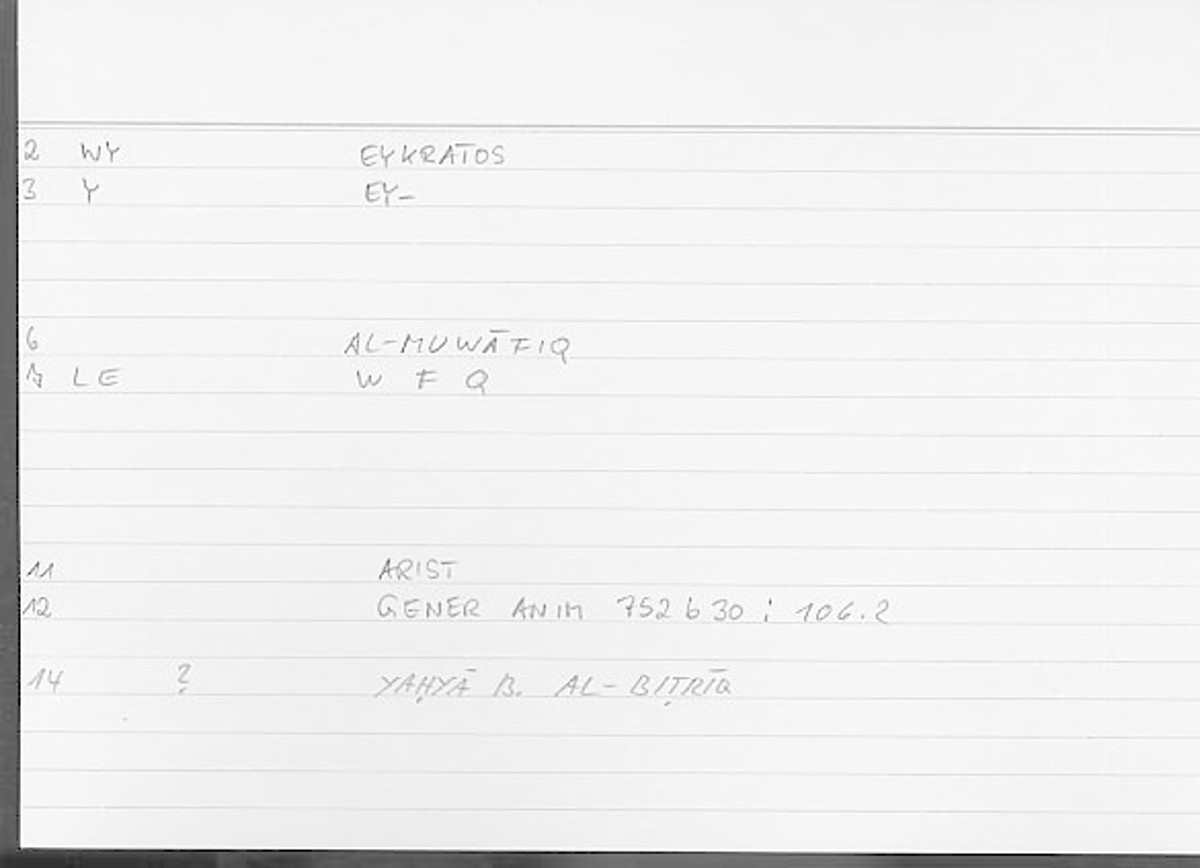 2 WY EYKRATOS
3 Y EY–
6 AL-MUWĀFIQ
7 LE W F Q
11 ARIST
12 GENER ANIM 752 b 30 ; 106.2
14 ? YAḤYĀ B. AL-BIṬRĪQ